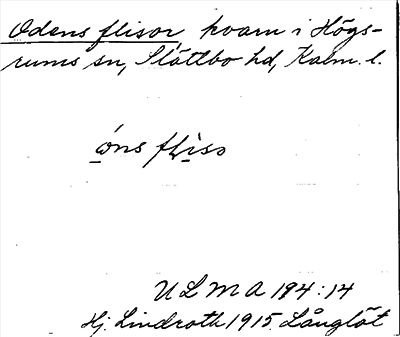 Odens flisor, kvarn i Högs-
rums sn, Slättbo hd, Kalm. l.
óns fliso
ULMA 194:14
Hj. Lindroth 1915. Långlöt